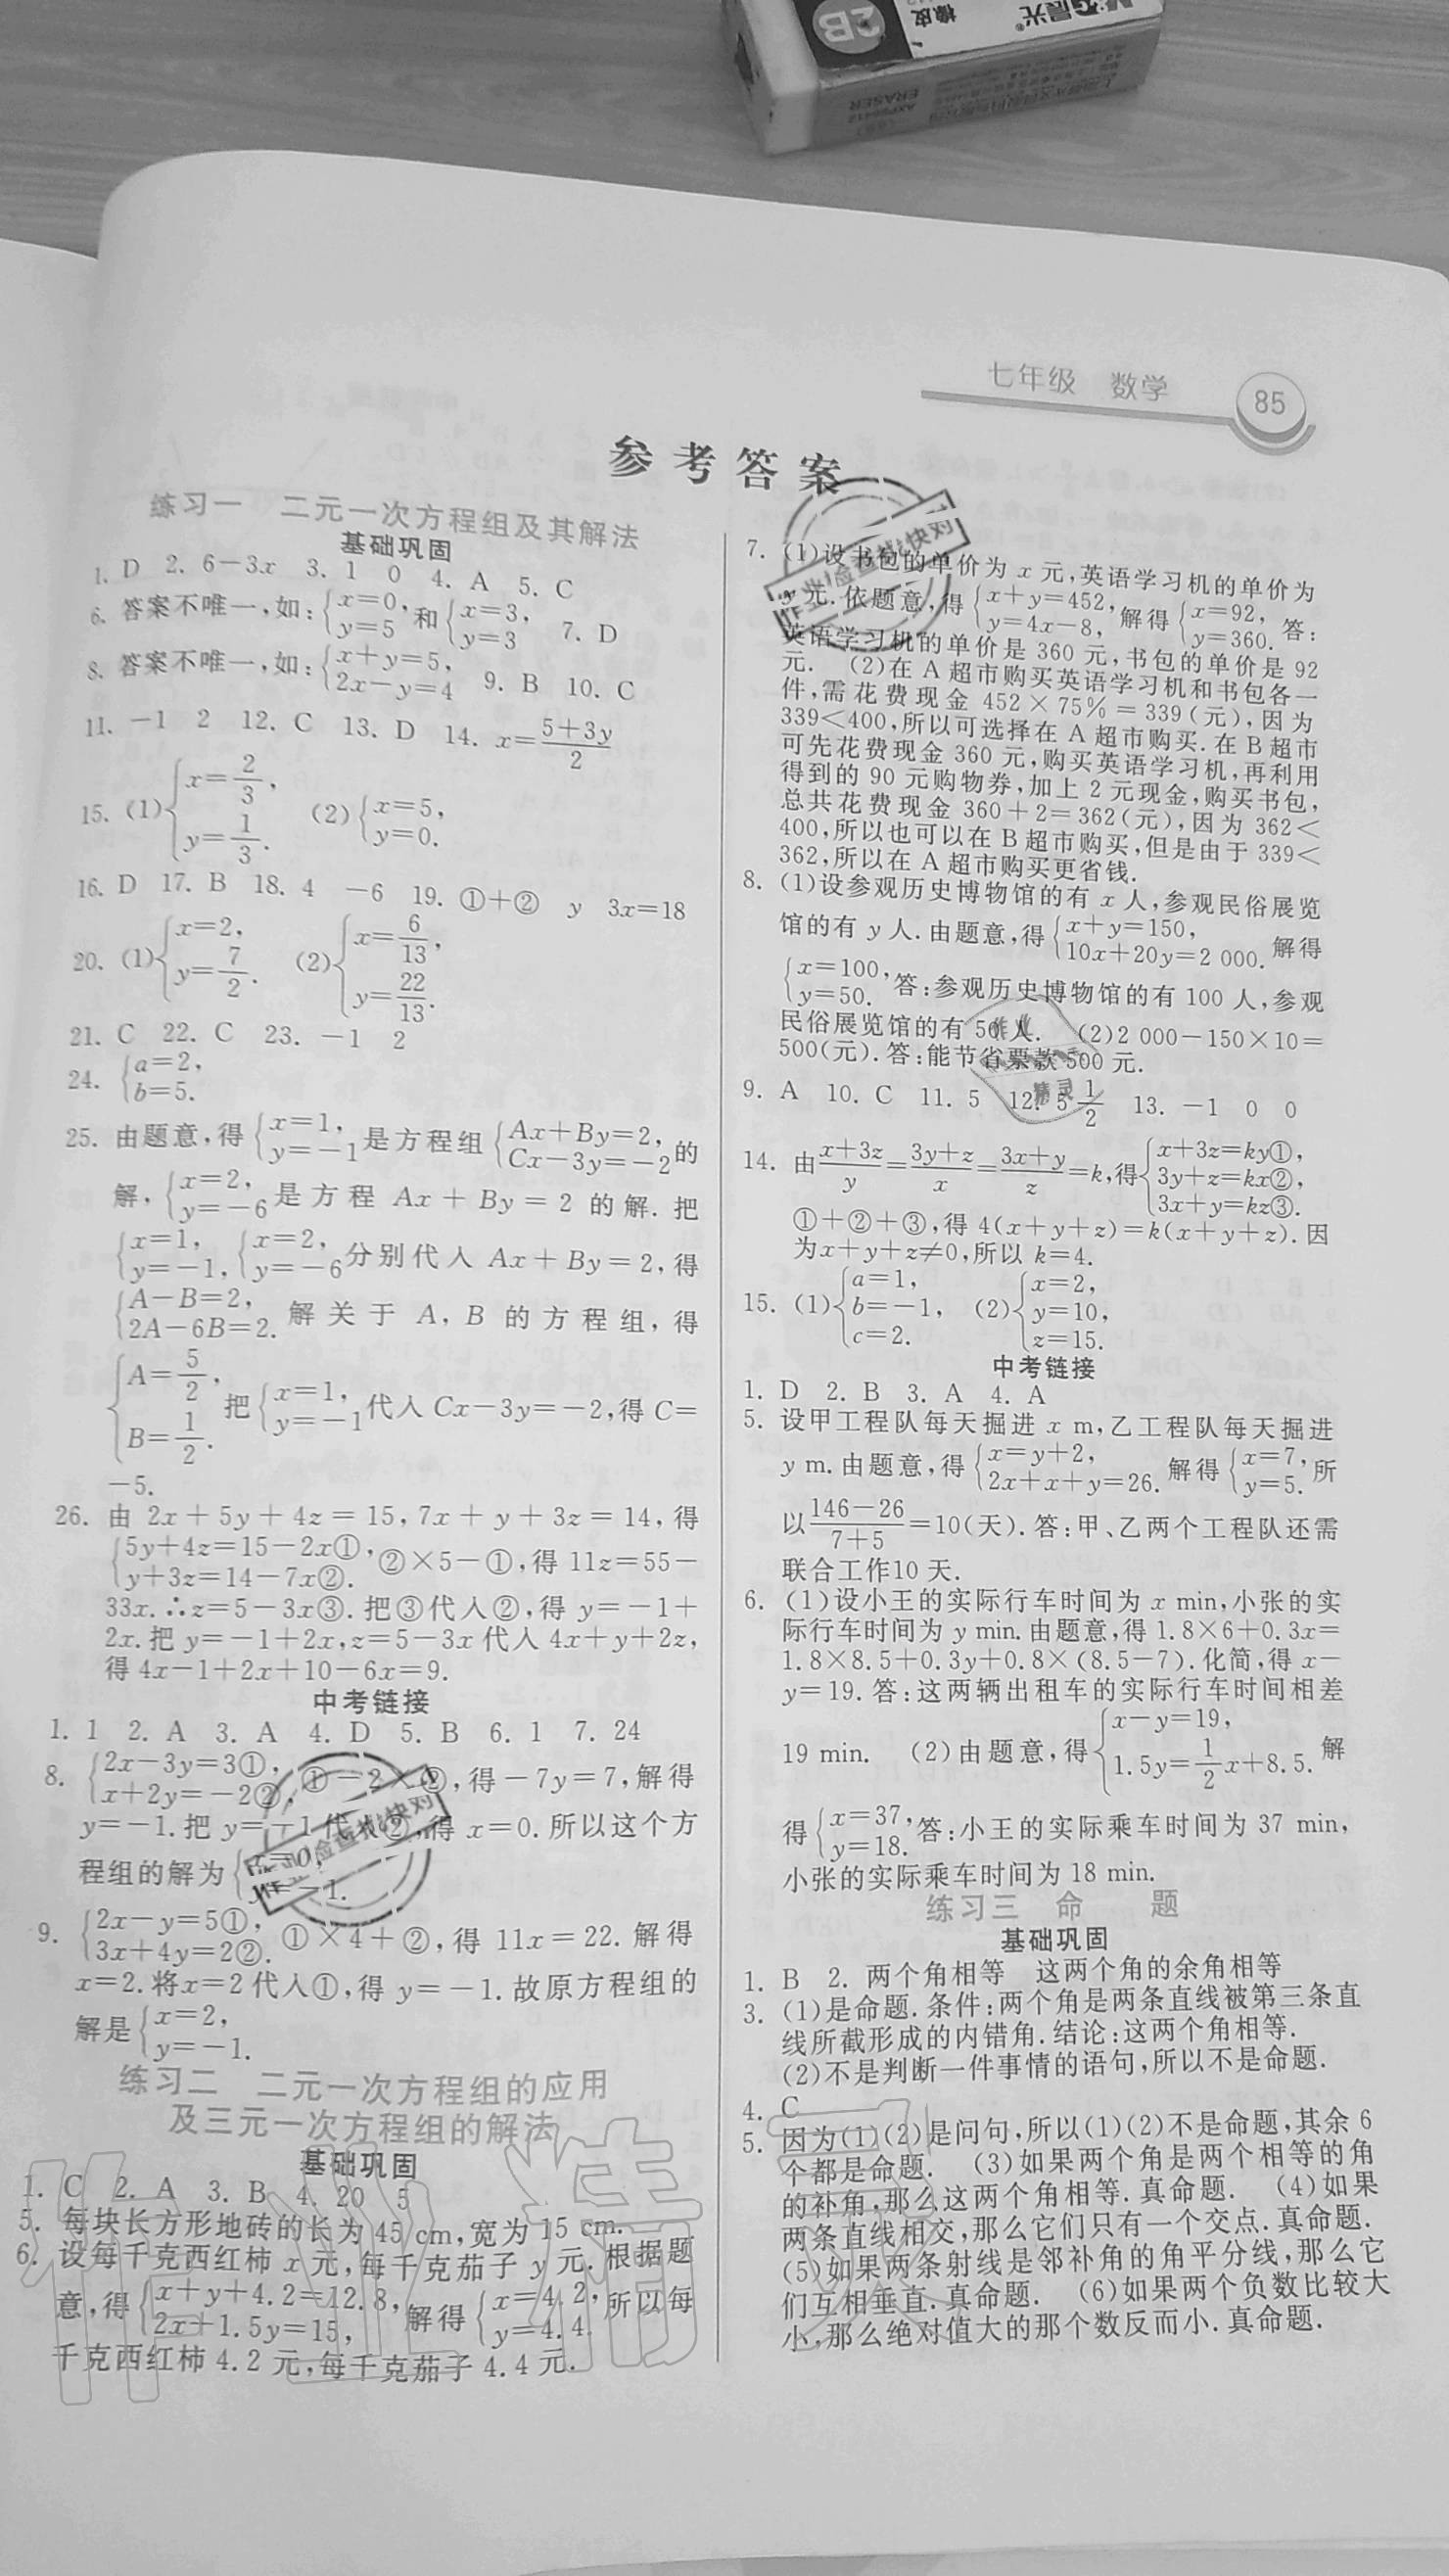 2B
橡皮
晨光
ERASER
七年级 数学 85
参考答案
练习一 二元一次方程组及其解法
基础巩固
1. D 2. 6-3x 3. 1 0 4. A 5. C
6. 答案不唯一,如:{x=0, y=5 和{x=3, y=3 7. D
8. 答案不唯一,如:{x+y=5, 2x-y=4 9. B 10. C
11. -1 2 12. C 13. D 14. x=(5+3y)/2
15. (1){x=2/3, y=1/3. (2){x=5, y=0.
16. D 17. B 18. 4 -6 19. ①+② y 3x=18
20. (1){x=2, y=7/2. (2){x=6/13, y=22/13.
21. C 22. C 23. -1 2
24. {a=2, b=5.
25. 由题意,得{x=1, y=-1是方程组{Ax+By=2, Cx-3y=-2的
解,{x=2, y=-6是方程 Ax+By=2 的解.把
{x=1, y=-1,{x=2, y=-6分别代入 Ax+By=2,得
{A-B=2, 2A-6B=2.解关于 A,B 的方程组,得
{A=5/2, B=1/2.把{x=1, y=-1代入 Cx-3y=-2,得 C=
-5.
26. 由 2x+5y+4z=15,7x+y+3z=14,得
{5y+4z=15-2x①, y+3z=14-7x②.②×5-①,得 11z=55-
33x.∴z=5-3x③.把③代入②,得 y=-1+
2x.把 y=-1+2x,z=5-3x 代入 4x+y+2z,
得 4x-1+2x+10-6x=9.
中考链接
1. 1 2. A 3. A 4. D 5. B 6. 1 7. 24
8. {2x-3y=3①, x+2y=-2②,①-2×②,得-7y=7,解得
y=-1.把 y=-1代入②,得 x=0.所以这个方
程组的解为{x=0, y=-1.
9. {2x-y=5①, 3x+4y=2②.①×4+②,得 11x=22.解得
x=2.将x=2代入①,得 y=-1.故原方程组的
解是{x=2, y=-1.
练习二 二元一次方程组的应用
及三元一次方程组的解法
基础巩固
1. C 2. A 3. B 4. 20 5
5. 每块长方形地砖的长为 45 cm,宽为 15 cm.
6. 设每千克西红柿 x 元,每千克茄子 y 元.根据题
意,得{x+y+4.2=12.8, 2x+1.5y=15,解得{x=4.2, y=4.4.所以每
千克西红柿 4.2 元,每千克茄子 4.4 元.
7. (1)设书包的单价为 x 元,英语学习机的单价为
y 元.依题意,得{x+y=452, y=4x-8,解得{x=92, y=360.答:
英语学习机的单价是 360 元,书包的单价是 92
元. (2)在 A 超市购买英语学习机和书包各一
件,需花费现金 452×75%=339(元),因为
339<400,所以可选择在 A 超市购买.在 B 超市
可先花费现金 360 元,购买英语学习机,再利用
得到的 90 元购物券,加上 2 元现金,购买书包,
总共花费现金 360+2=362(元),因为 362<
400,所以也可以在 B 超市购买,但是由于 339<
362,所以在 A 超市购买更省钱.
8. (1)设参观历史博物馆的有 x 人,参观民俗展览
馆的有 y 人.由题意,得{x+y=150, 10x+20y=2 000.解得
{x=100, y=50.答:参观历史博物馆的有 100 人,参观
民俗展览馆的有 50 人. (2)2 000-150×10=
500(元).答:能节省票款 500 元.
9. A 10. C 11. 5 12. 5 1/2 13. -1 0 0
14. 由(x+3z)/y=(3y+z)/x=(3x+y)/z=k,得{x+3z=ky①, 3y+z=kx②, 3x+y=kz③.
①+②+③,得 4(x+y+z)=k(x+y+z).因
为x+y+z≠0,所以 k=4.
15. (1){a=1, b=-1, c=2. (2){x=2, y=10, z=15.
中考链接
1. D 2. B 3. A 4. A
5. 设甲工程队每天掘进 x m,乙工程队每天掘进
y m.由题意,得{x=y+2, 2x+x+y=26.解得{x=7, y=5.所
以(146-26)/(7+5)=10(天).答:甲、乙两个工程队还需
联合工作10 天.
6. (1)设小王的实际行车时间为 x min,小张的实
际行车时间为 y min.由题意,得 1.8×6+0.3x=
1.8×8.5+0.3y+0.8×(8.5-7).化简,得 x-
y=19.答:这两辆出租车的实际行车时间相差
19 min. (2)由题意,得{x-y=19, 1.5y=1/2x+8.5.解
得{x=37, y=18.答:小王的实际乘车时间为 37 min,
小张的实际乘车时间为 18 min.
练习三 命 题
基础巩固
1. B 2. 两个角相等 这两个角的余角相等
3. (1)是命题.条件:两个角是两条直线被第三条直
线所截形成的内错角.结论:这两个角相等.
(2)不是判断一件事情的语句,所以不是命题.
4. C
5. 因为(1)(2)是问句,所以(1)(2)不是命题,其余 6
个都是命题. (3)如果两个角是两个相等的角
的补角,那么这两个角相等.真命题. (4)如果
两条直线相交,那么它们只有一个交点.真命题.
(5)如果两条射线是邻补角的角平分线,那么它
们互相垂直.真命题. (6)如果两个负数比较大
小,那么绝对值大的那个数反而小.真命题.